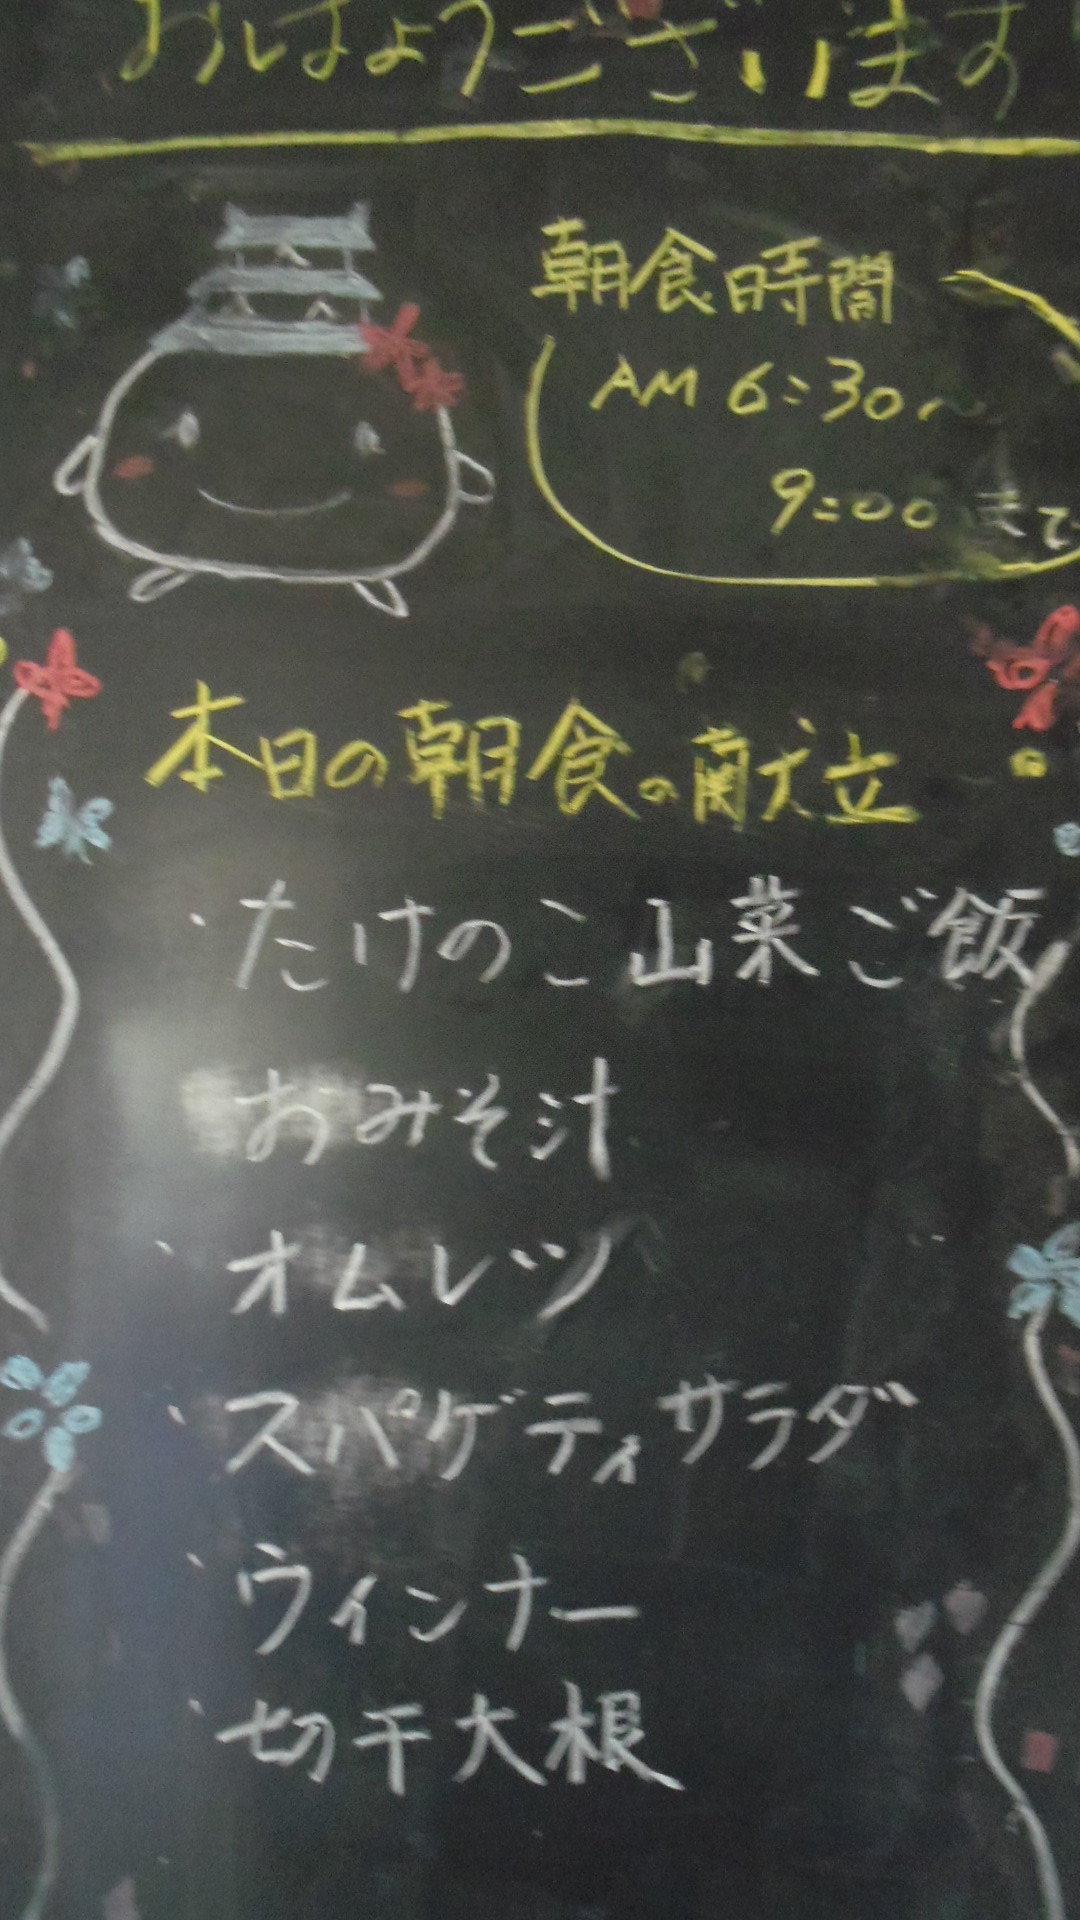 おはようございます
朝食時間
AM 6:30～
9:00 まで
本日の朝食の献立
・たけのこ山菜ご飯
おみそ汁
・オムレツ
・スパゲティサラダ
・ウィンナー
・切干大根